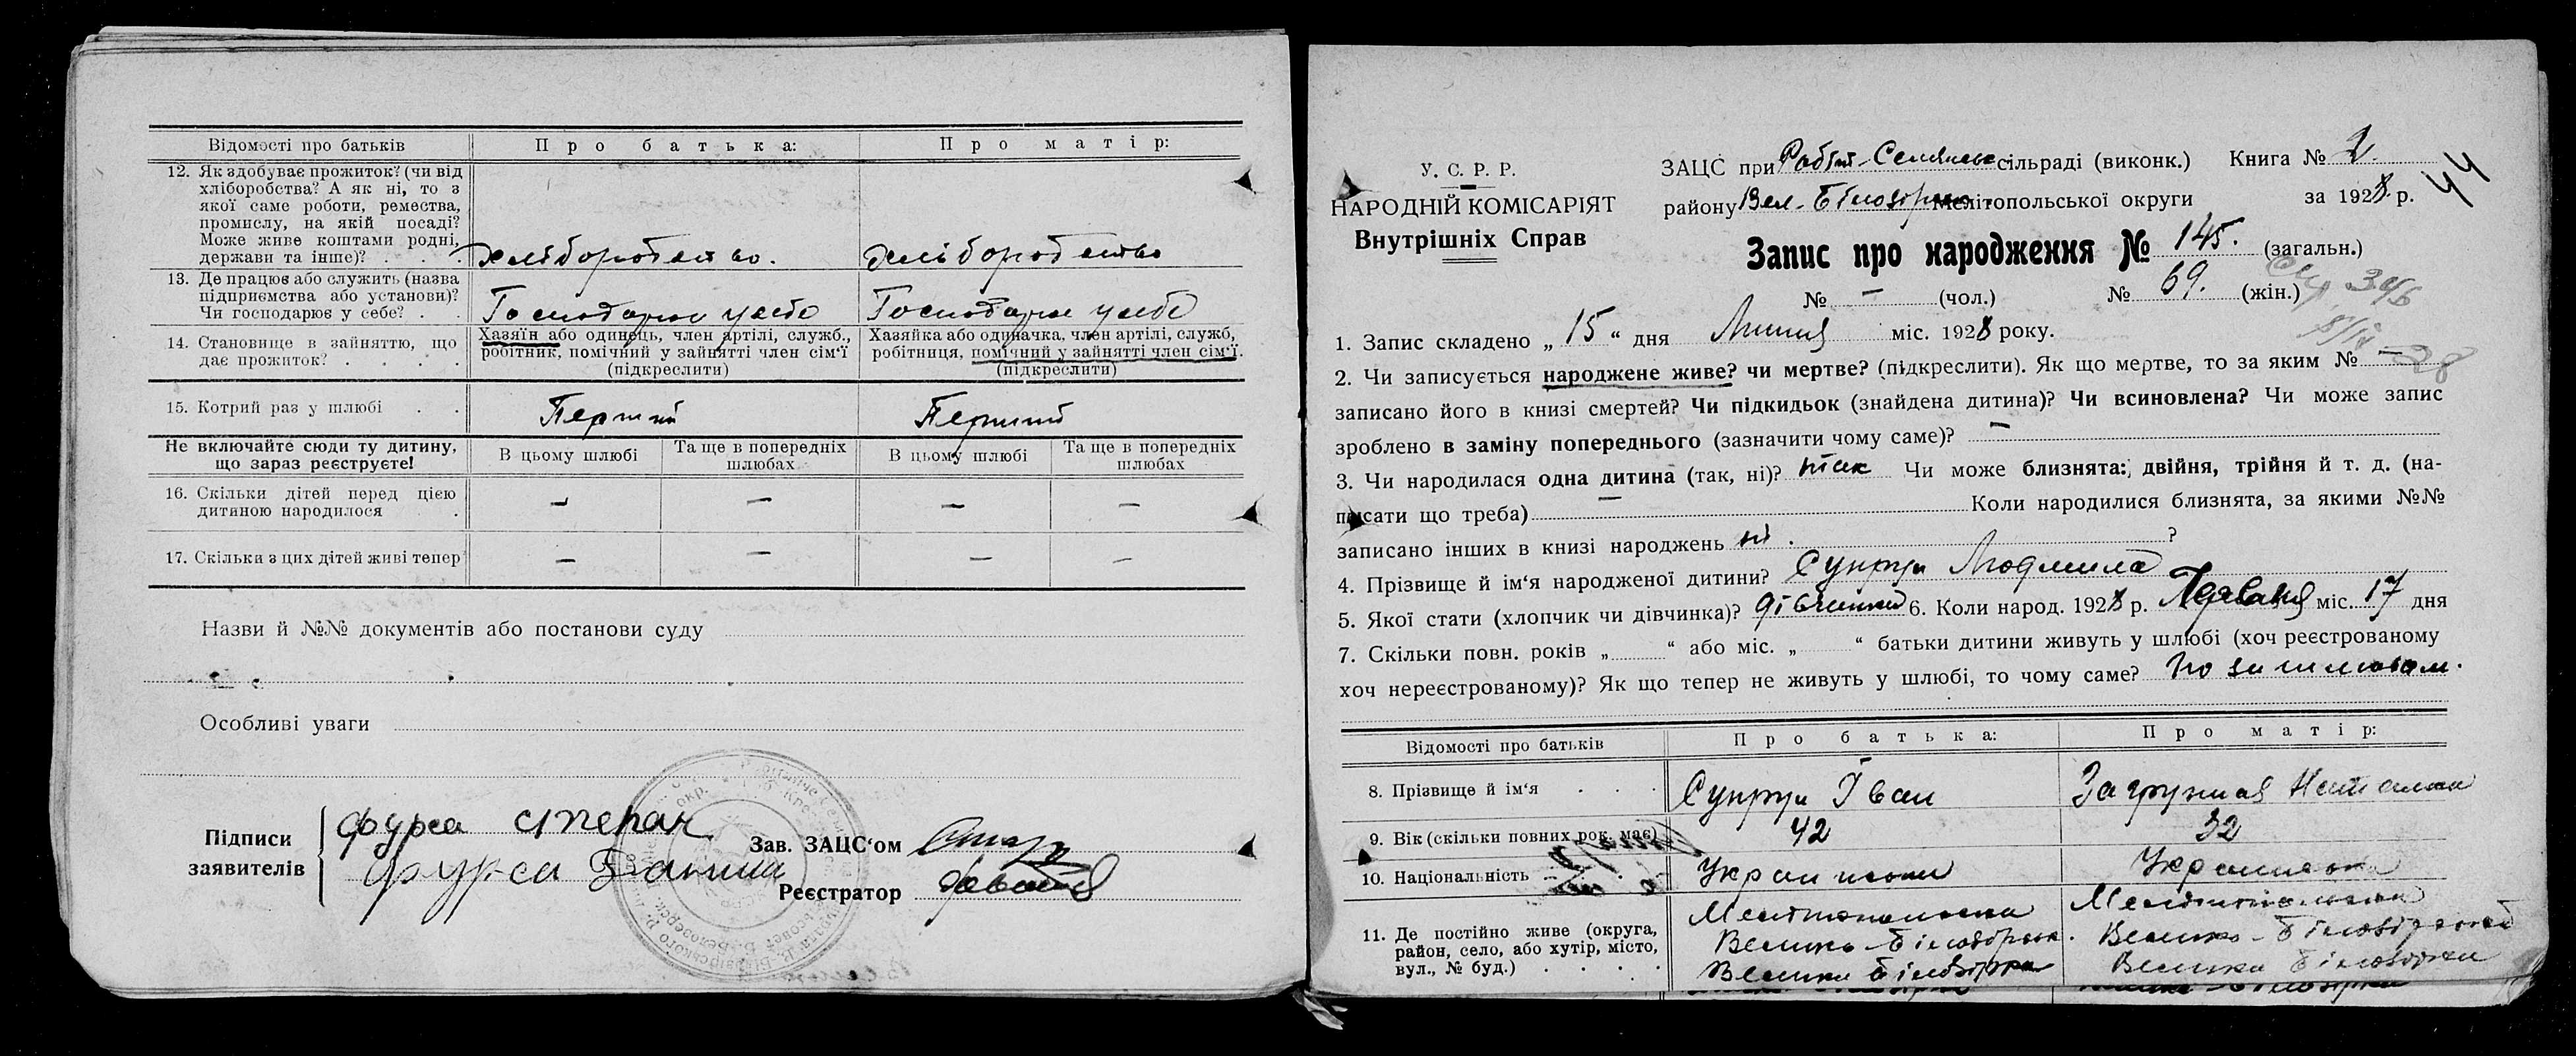 Відомості про батьків
Про батька:
Про матір:
12. Як здобуває прожиток? (чи від
хліборобства? А як ні, то з
якої саме роботи, ремества,
промислу, на якій посаді?
Може живе коштами родні,
держави та інше)? . . .
хліборобство.
хліборобство
13. Де працює або служить (назва
підприємства або установи)?
Чи господарює у себе? . .
Господарює у себе
Господарює у себе
14. Становище в зайняттю, що
дає прожиток? . . . .
Хазяїн або одинець, член артілі, служб.,
робітник, помічний у зайнятті член сім‘ї
(підкреслити)
Хазяйка або одиначка, член артілі, служб,
робітниця, помічний у зайнятті член сім‘ї.
(підкреслити)
15. Котрий раз у шлюбі . .
Перший
Перший
Не включайте сюди ту дитину,
що зараз реєструєте!
В цьому шлюбі
Та ще в попередніх
шлюбах
В цьому шлюбі
Та ще в попередніх
шлюбах
16. Скільки дітей перед цією
дитиною народилося .
— — — —
17. Скілька з цих дітей живі тепер
— — — —
Назви й №№ документів або постанови суду
Особливі уваги
Підписи
заявителів
Фурса степан
Фурса
Зав. ЗАЦС‘ом
Реєстратор
У. С. Р. Р.
НАРОДНІЙ КОМІСАРІЯТ
Внутрішніх Справ
ЗАЦС при сільраді (виконк.) Книга № 2.
44
району Вел-Білозірка Мелітопольської округи за 1928 р.
Запис про народження № 145. (загальн.)
№ — (чол.) № 69. (жін.)
1. Запис складено „ 15 “ дня Липня міс. 1928 року.
2. Чи записується народжене живе? чи мертве? (підкреслити). Як що мертве, то за яким № —
записано його в книзі смертей? Чи підкидьок (знайдена дитина)? Чи всиновлена? Чи може запис
зроблено в заміну попереднього (зазначити чому саме)? —
3. Чи народилася одна дитина (так, ні)? так Чи може близнята: двійня, трійня й т. д. (на-
писати що треба) — Коли народилися близнята, за якими №№
записано інших в книзі народжень ні . ?
4. Прізвище й ім‘я народженої дитини? Супрун Людмила
5. Якої стати (хлопчик чи дівчинка)? дівчинка 6. Коли народ. 1928 р. Червня міс. 17 дня
7. Скільки повн. років „ “ або міс. „ “ батьки дитини живуть у шлюбі (хоч реєстрованому
хоч нереєстрованому)? Як що тепер не живуть у шлюбі, то чому саме?
Відомості про батьків
Про батька:
Про матір:
8. Прізвище й ім‘я . . .
Супрун Іван
Загрудная Наталка
9. Вік (скільки повних рок. має)
42
32
10. Національність
Українська
Українська
11. Де постійно живе (округа,
район, село, або хутір, місто,
вул., № буд.) . . . .
Мелітопольська
Велико-Білозірськ.
Велика Білозірка
Мелітопольська
Велико-Білозірський
Велика Білозірка